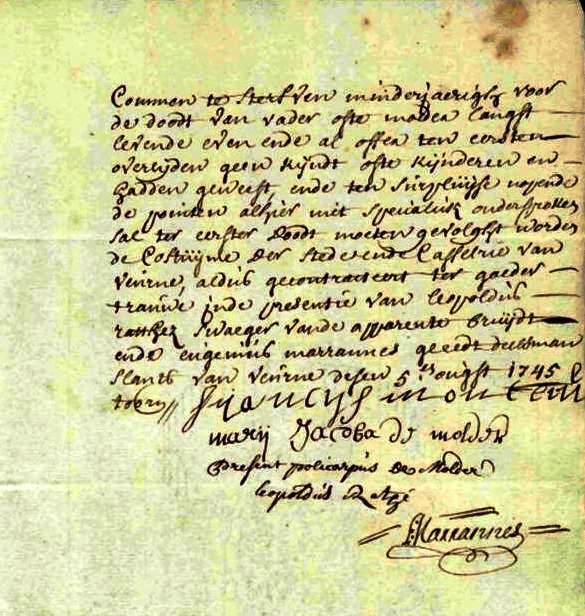 Commen te sterfven minderjaerigh voor
de doodt van vader ofte moder langst
levende even ende al offer ten eersten
overlijden geen kijndt ofte kijnderen en
hadden geweest, ende ten surpluijse nopende
de pointen alhier niet specialick ondersproken
sal ter eerster doodt moeten gevolght worden
de Costuijme der stede ende Casselrie van
veurne, aldus gecontracteert ter goeder
trauwe inde presentie van Leopoldus
swaeger vande apparente bruijdt
ende eugenius marrannes geeedt deelsman
slants van veurne desen 5 ougst 1745
toorn// franciis
marij Jacoba de molder
present policarpus de Molder
leopoldus
Marrannes